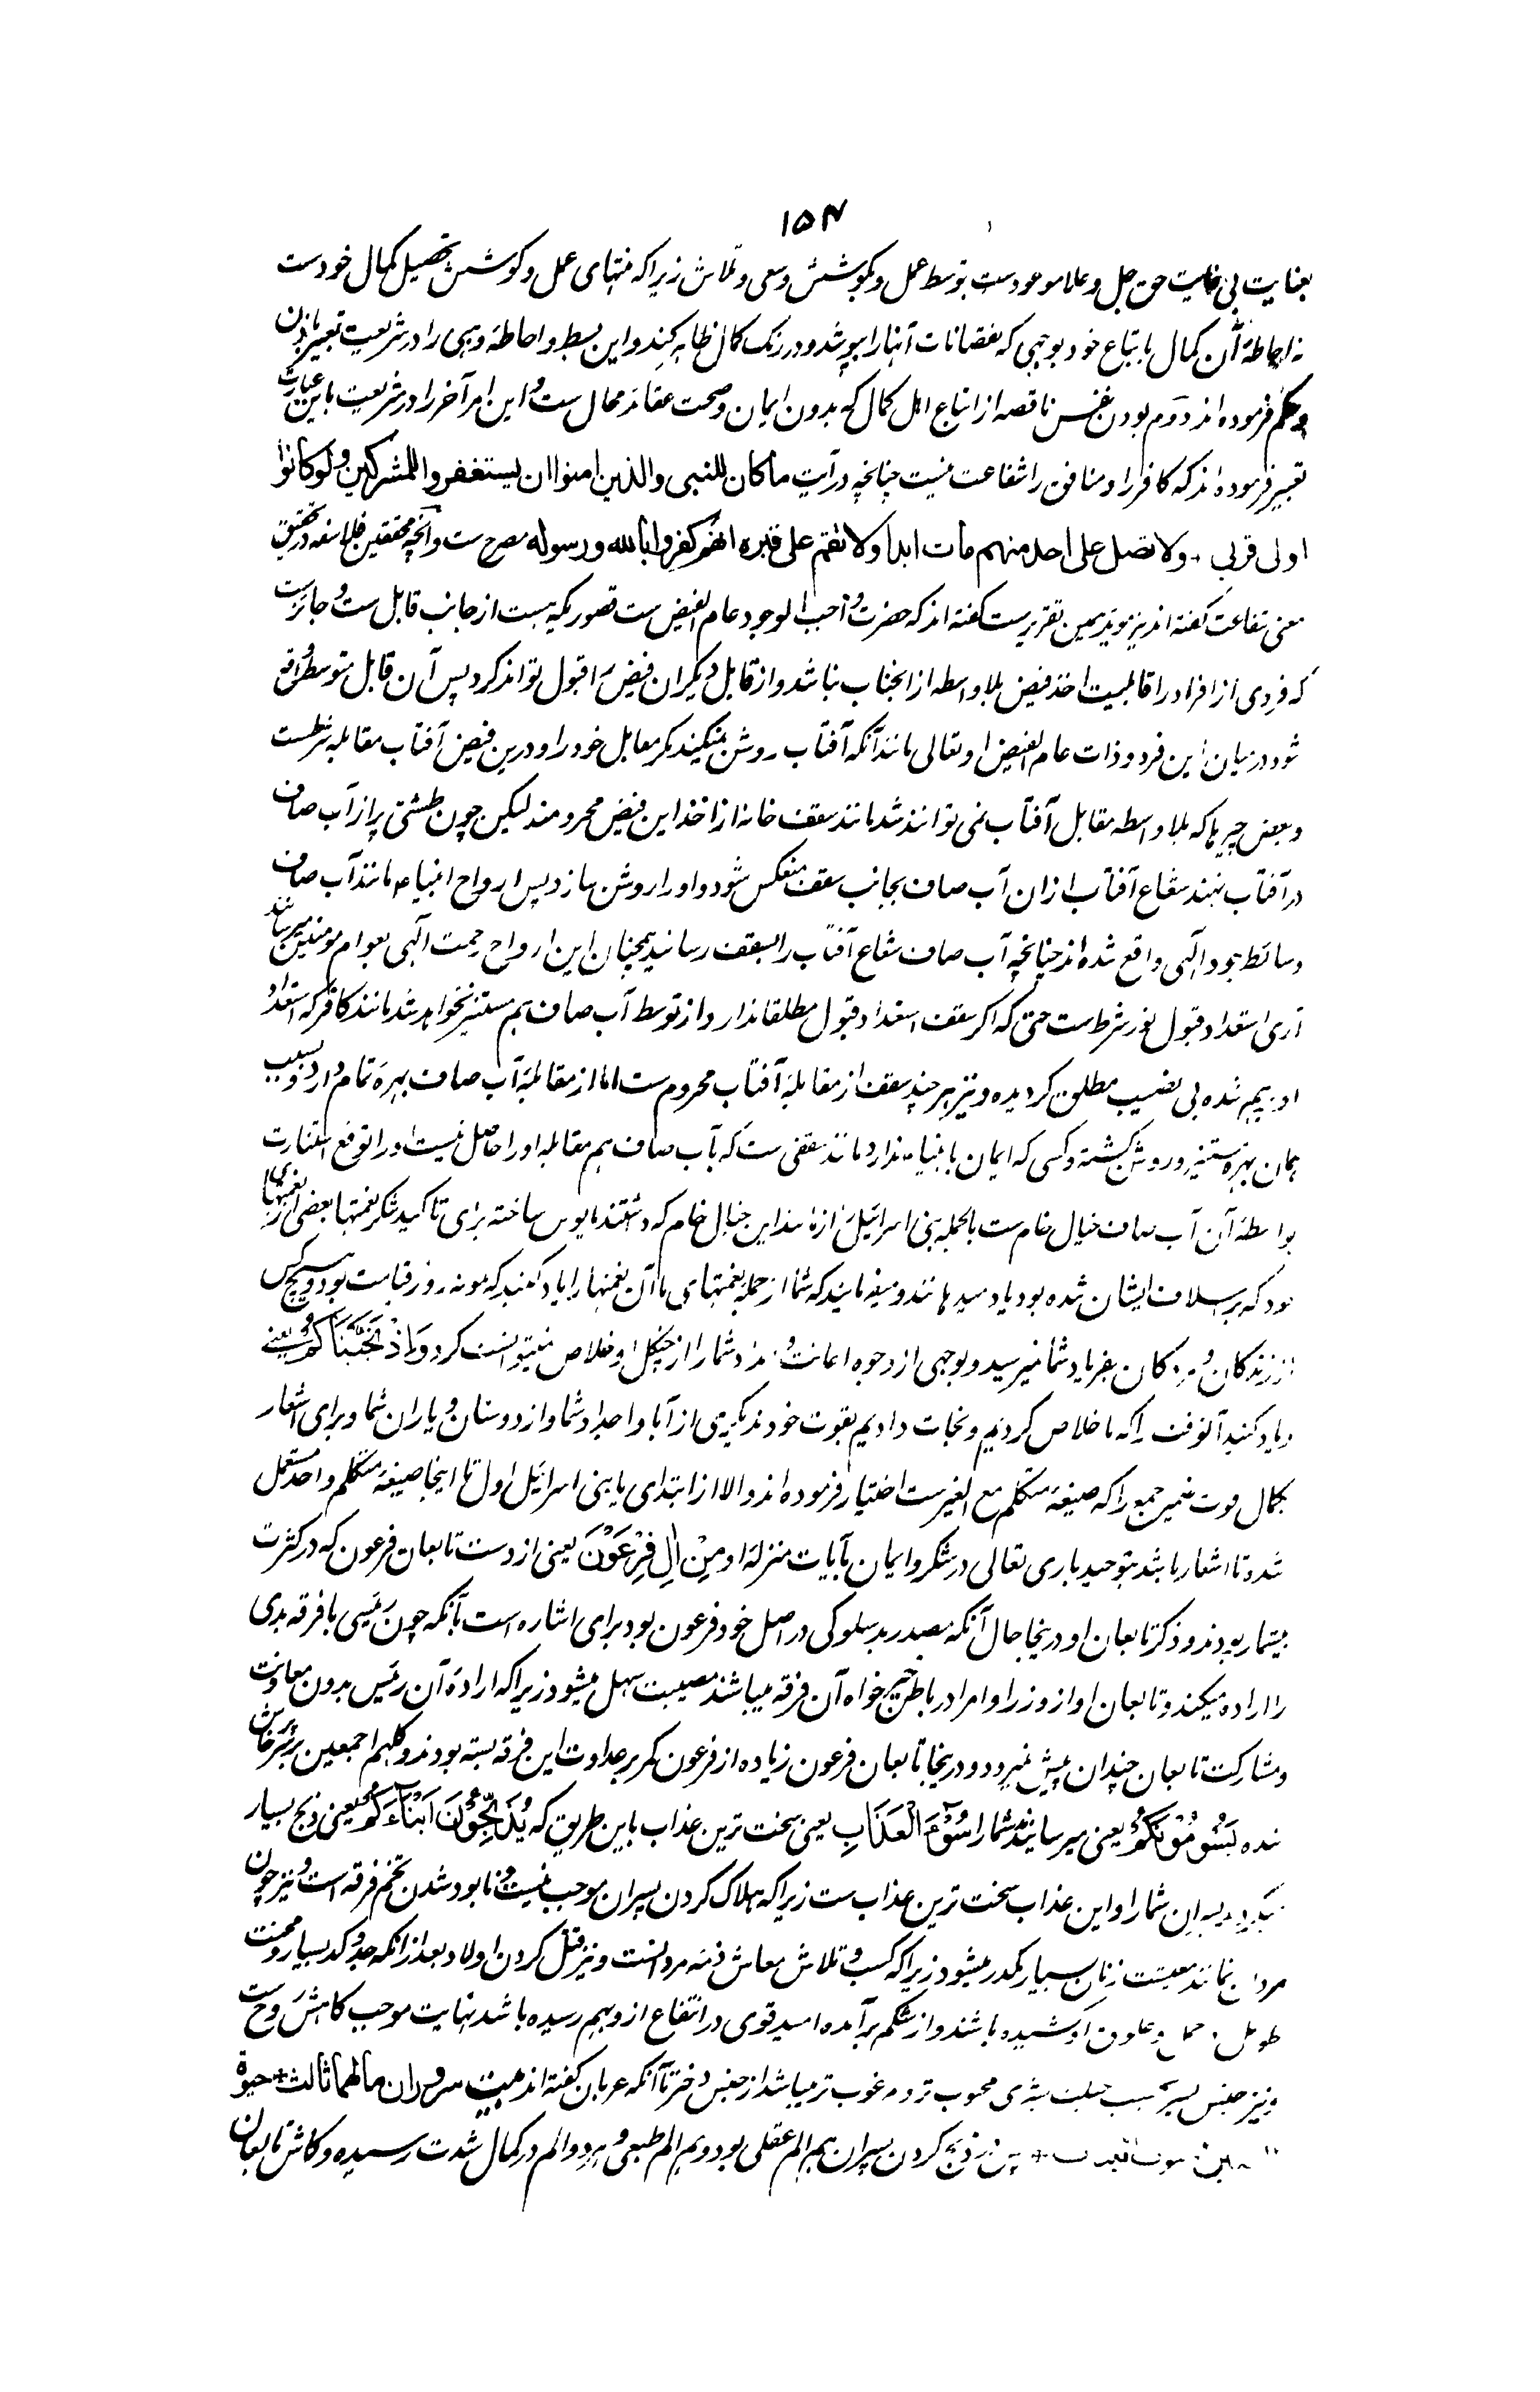 ۱۵۴
بعنایت بی غایت حق جل و علا موعودست بتوسط عمل و بکوشش و سعی و تلاش زیرا که منتهای عمل و کوشش تحصیل کمال خودست
نه احاطهٔ آن کمال باتباع خود بوجهی که نقصانات آنها را بپوشد و در رنگ کمال ظاهر کند و این بسط و احاطهٔ وهبی را در شریعت تعبیر باذن
و حکم فرموده اند دوم بودن نفس ناقصه از اتباع اهل کمال که بدون ایمان و صحت عقائد محال ست و این امر آخر را در شریعت باین عبارت
تعبیر فرموده اند که کافر را و منافق را شفاعت نیست چنانچه در آیت ما کان للنبی والذین امنوا ان یستغفروا للمشرکین ولو کانوا
اولی قربی ۔ ولا تصل علی احد منهم مات ابدا ولا تقم علی قبره انهم کفروا بالله ورسوله مصرح ست و آنچه محققین فلاسفه در تحقیق
معنی شفاعت گفته اند نیز موید همین تقریر ست گفته اند که حضرت واجب الوجود عام الفیض ست قصوریکه هست از جانب قابل ست و جائزست
که فردی از افراد را قابلیت اخذ فیض بلا واسطه از انجناب نباشد و از قابل دیگر ان فیض را قبول تواند کرد پس آن قابل متوسط واقع
شود درمیان این فرد و ذات عام الفیض او تعالی مانند آنکه آفتاب روشن نمیکند مگر مقابل خود را و درین فیض آفتاب مقابله شرطست
و بعض چیزها که بلا واسطه مقابل آفتاب نمی توانند شد مانند سقف خانه از اخذ این فیض محرومند لیکن چون طشتی پر از آب صاف
در آفتاب نهند شعاع آفتاب ازان آب صاف بجانب سقف منعکس شود و او را روشن سازد پس ارواح انبیاء مانند آب صاف
وسائط جود الٓهی واقع شده اند چنانچه آب صاف شعاع آفتاب را بسقف رسانید همچنان این ارواح رحمت الٓهی بعوام مومنین میرسانند
آری استعداد قبول نور شرط ست حتی که اگر سقف استعداد قبول مطلقا ندارد از توسط آب صاف هم مستنیر نخواهد شد مانند کافر که استعداد
او برهم شده بی نصیب مطلق گردیده و نیز هر چند سقف از مقابلهٔ آفتاب محروم ست اما از مقابلهٔ آب صاف بهرهٔ تمام دارد و بسبب
همان بهره مستنیر و روشن گشته و کسی که ایمان بانبیاء ندارد مانند سقفی ست که بآب صاف هم مقابله او را حاصل نیست او را توقع استنارت
بواسطهٔ آن آب صاف خیال خام ست بالجمله بنی اسرائیل را ازین خیال خام که داشتند مایوس ساخته برای تاکید شکر نعمتها بعضی از نعمتهای
خود که بر اسلاف ایشان شده بود یاد میدهانند و میفرمایند که شما از جمله نعمتهای ما آن نعمتها را یاد کنید که نمونه روز قیامت بود و هیچ کس
از زندگان و مردگان بفریاد شما نمیرسید و بوجهی از وجوه اعانت و نه شما را از چنگل او خلاص نمیتوانست کرد وَاِذْ نَجَّیْنَاکُمْ یعنی
و یاد کنید آنوقت را که ما خلاص کردیم و نجات دادیم بقوت خود از آبا و اجداد شما و از دوستان و یاران شما و برای اشعار
بکمال قوت ضمیر جمع را که صیغهٔ متکلم مع الغیرست اختیار فرموده اند و الا از ابتدای یا بنی اسرائیل اول تا اینجا صیغهٔ متکلم واحد مستعمل
شده تا اشعار باشد بتوحید باری تعالی در شکر و ایمان بآیات منزلهٔ او مِنْ اٰلِ فِرْعَوْنَ یعنی از دست تابعان فرعون که در کثرت
بیشمار بودند و ذکر تابعان او درینجا حال آنکه مصدر بدسلوکی در اصل خود فرعون بود برای اشاره است بآنکه چون رئیسی با فرقه بدی
را اراده میکند و تابعان او از وزرا و امرا در باطن خیر خواه آن فرقه میباشند مصیبت سهل میشود زیرا که ارادهٔ آن رئیس بدون معاونت
و مشارکت تابعان چندان پیش نمیرود و درینجا تابعان فرعون زیاده از فرعون کمر بر عداوت این فرقه بسته بودند و کلهم اجمعین پرخاش
شده یَسُوْمُوْنَکُمْ یعنی میرسانیدند شما را سُوْٓءَ الْعَذَابِ یعنی سخت ترین عذاب باین طریق که یُذَبِّحُوْنَ اَبْنَآءَکُمْ یعنی ذبح بسیار
میکردند پسران شما را و این عذاب سخت ترین عذاب ست زیرا که هلاک کردن پسران موجب نیست و نابود شدن تخم فرقه است و نیز چون
مردان نمانند معیشت زنان بسیار مکدر میشود زیرا که کسب و تلاش معاش ذمه مردانست و نیز قتل کردن اولاد بعد ازانکه جد و کد بسیار و محنت
طویل حمل کشیده باشند و از شکم برآمده امید قوی در انتفاع ازو بهم رسیده باشد نهایت موجب کاهش و حسرت
و نیز جنس پسر بحسب جبلت بشری محبوب تر و مرغوب تر میباشد از جنس دختر تا آنکه عربان گفته اند بیت سروران مالهما ثالث + حیوة
البنین و موت البنات + پس ذبح کردن پسران هم الم عقلی بود و هم الم طبعی و هر دو الم در کمال شدت رسیده و کاش تابعان